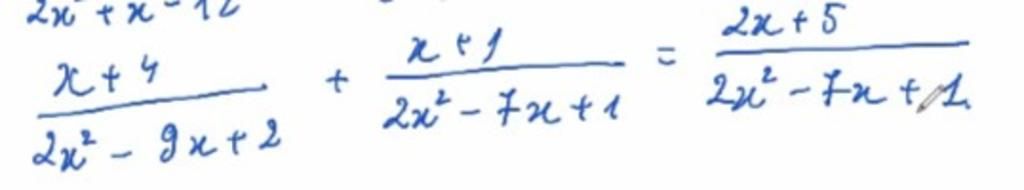 2x² + x - 12
x + 4 / 2x² - 9x + 2 + x + 1 / 2x² - 7x + 1 = 2x + 5 / 2x² - 7x + 1